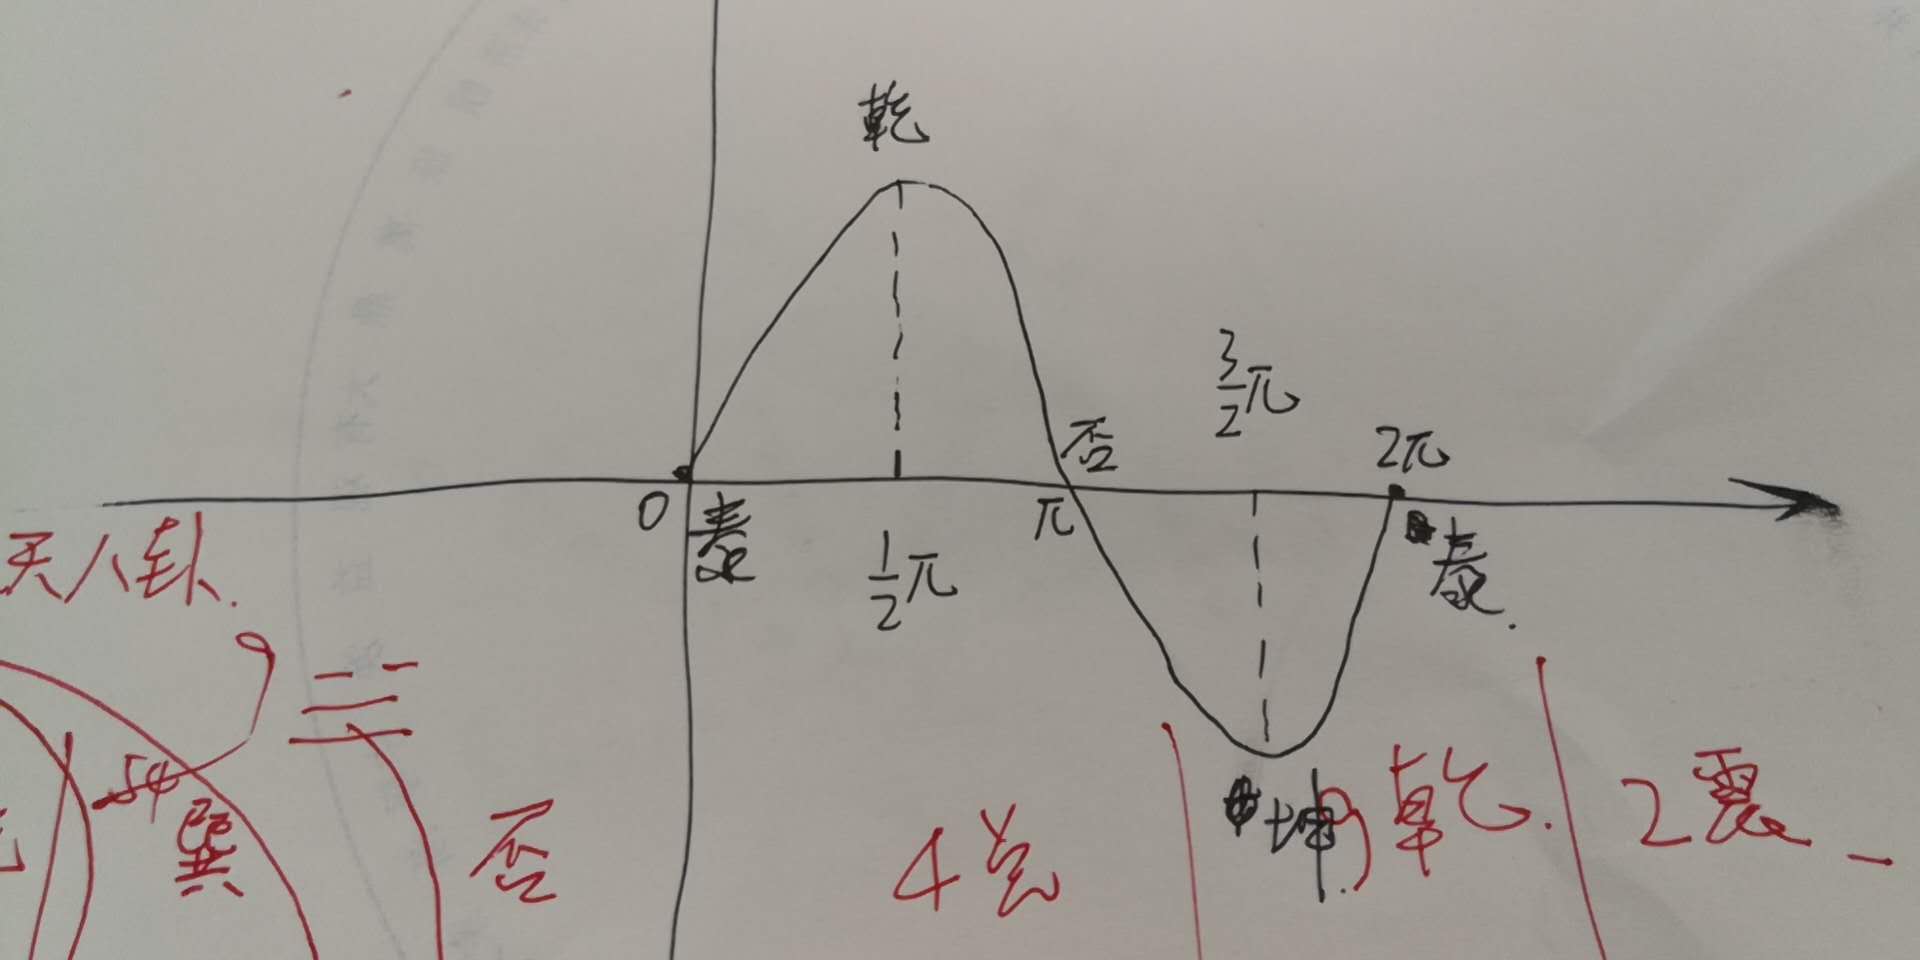 乾
3/2 π
否
2π
0
泰
π
1/2 π
泰.
天八卦.
54
巽
否
4 兑
坤.
9 乾.
2 震